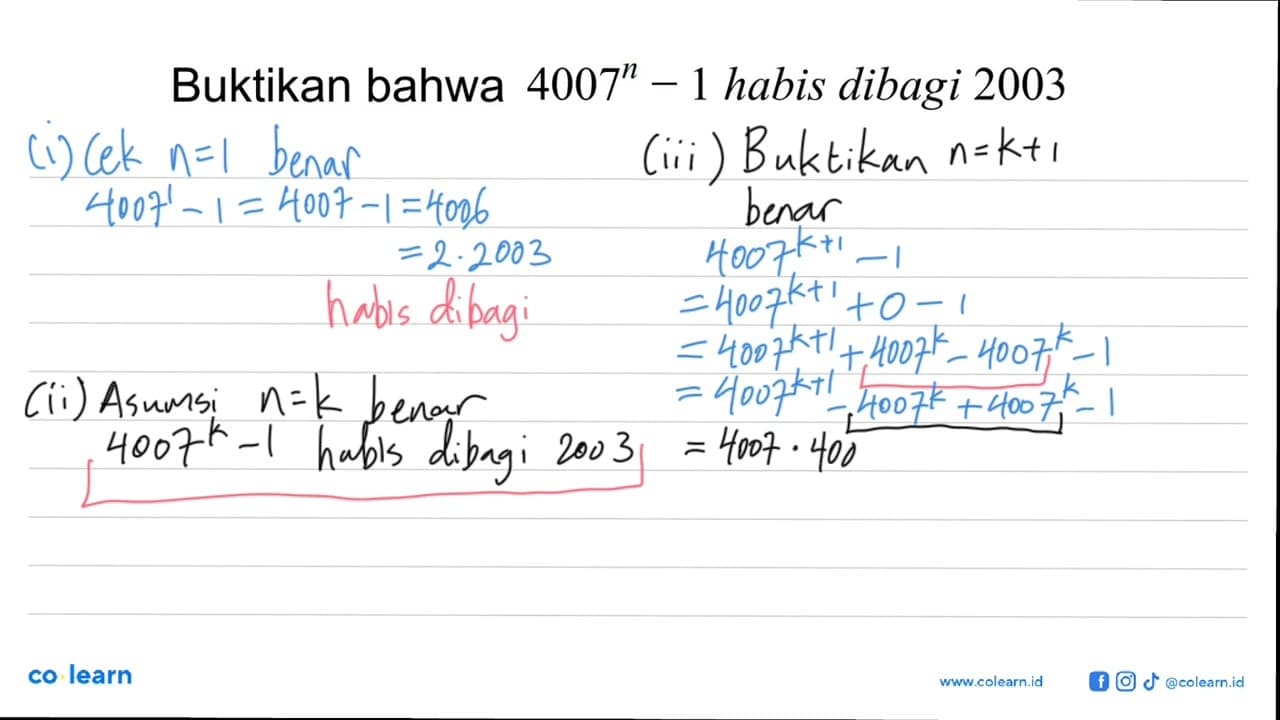 Buktikan bahwa 4007ⁿ − 1 habis dibagi 2003
(i) Cek n=1 benar
4007¹ − 1 = 4007 − 1 = 4006
= 2 . 2003
habis dibagi
(ii) Asumsi n=k benar
4007ᵏ − 1 habis dibagi 2003
(iii) Buktikan n=k+1
benar
4007ᵏ⁺¹ − 1
= 4007ᵏ⁺¹ + 0 − 1
= 4007ᵏ⁺¹ + 4007ᵏ − 4007ᵏ − 1
= 4007ᵏ⁺¹ − 4007ᵏ + 4007ᵏ − 1
= 4007 · 400
co·learn
www.colearn.id
@colearn.id